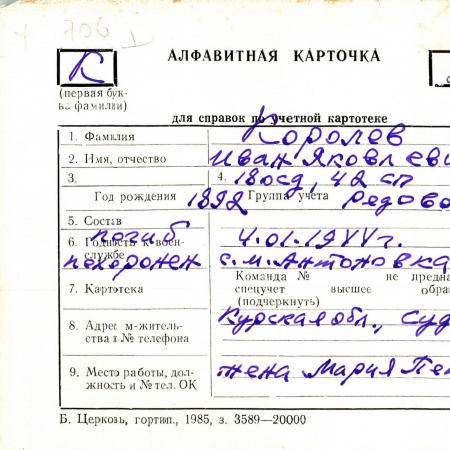 706 I
АЛФАВИТНАЯ КАРТОЧКА
К
(первая бук-
ва фамилии)
для справок по учетной картотеке
1. Фамилия Королев
2. Имя, отчество Иван Яковлеви
3. 4. 180сд, 42 сп
Год рождения 1892 Группа учета рядово
5. Состав
6. Годность к воен- погиб 4.01.1944г.
службе похоронен с.м.Антоновка
Команда № не предна
7. Картотека спецучет высшее обра
(подчеркнуть)
8. Адрес м-житель- Курская обл., Суд
ства и № телефона
9. Место работы, дол- жена Мария
жность и № тел. ОК
Б. Церковь, гортип., 1985, з. 3589—20000